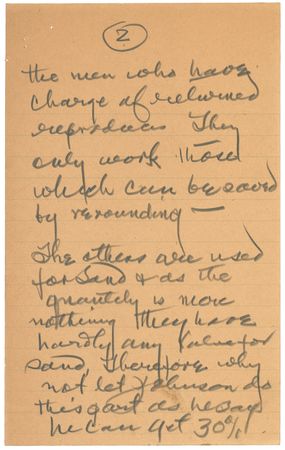 2
the men who have
charge of returned
reproducers They
only work those
which can be saved
by rerounding —
The others are used
for Sand & as the
quantity is more
nothing they have
hardly any value for
sand, Therefore why
not let Johnson do
this part as he says
he can get 30%